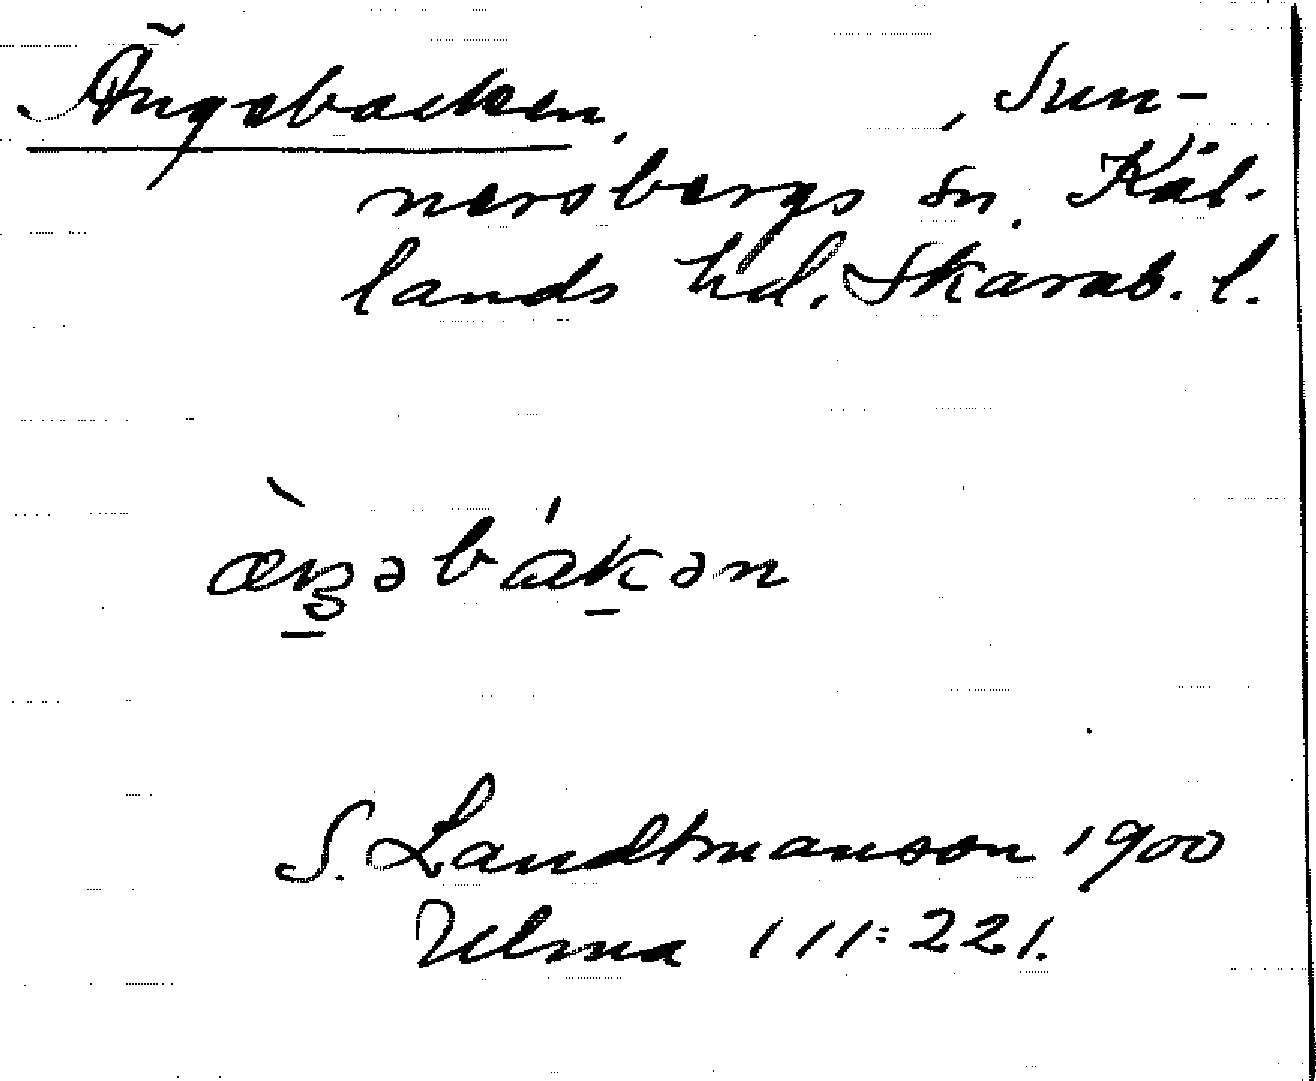 Ängabacken, , Sun-
nersbergs sn. Kål-
lands hd. Skarab. l.
æ̀ŋʒəbákən
S. Landtmanson 1900
Ulma 111:221.